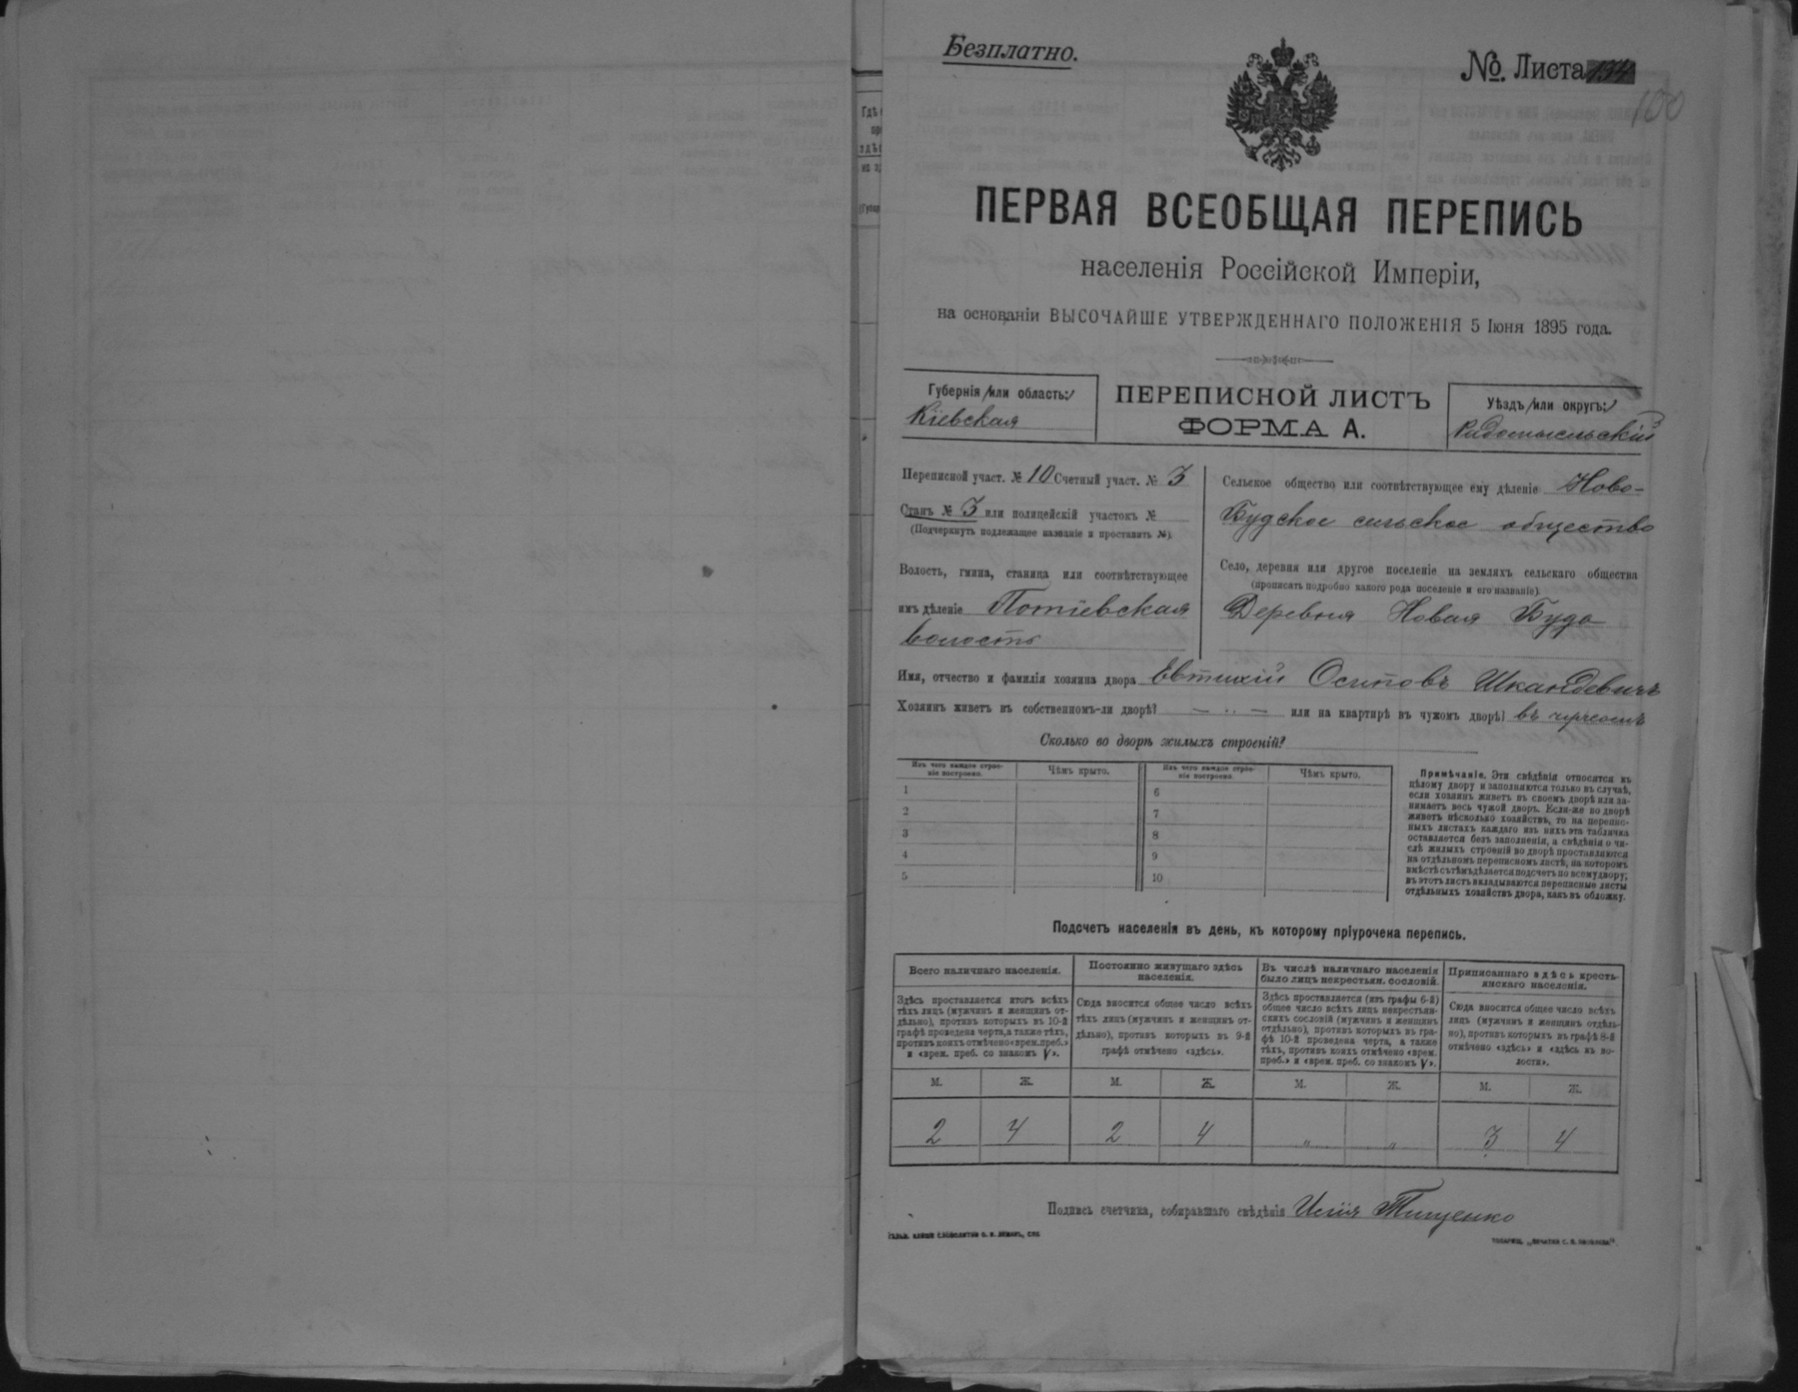 Безплатно.
№ Листа
100
ПЕРВАЯ ВСЕОБЩАЯ ПЕРЕПИСЬ
населенія Россійской Имперіи,
на основаніи ВЫСОЧАЙШЕ УТВЕРЖДЕННАГО ПОЛОЖЕНІЯ 5 Іюня 1895 года.
Губернія /или область:/
Кіевская
ПЕРЕПИСНОЙ ЛИСТЪ
ФОРМА А.
Уѣздъ /или округъ:/
Радомысльскій
Переписной участ. № 10 Счетный участ. № 3
Станъ № 3 или полицейскій участокъ №
(Подчеркнуть подлежащее названіе и проставить №)
Волость, гмина, станица или соотвѣтствующее
имъ дѣленіе Потіевская
волость
Сельское общество или соотвѣтствующее ему дѣленіе Ново-
Будское сельское общество
Село, деревня или другое поселеніе на земляхъ сельскаго общества
(прописать подробно какого рода поселеніе и его названіе)
Деревня Новая Буда
Имя, отчество и фамилія хозяина двора Евтихій Осиповъ Шкандевичъ
Хозяинъ живетъ въ собственномъ-ли дворѣ? — „ — или на квартирѣ въ чужомъ дворѣ? въ
Сколько во дворѣ жилыхъ строеній?
Изъ чего каждое строе-
ніе построено.
Чѣмъ крыто.
Изъ чего каждое строе-
ніе построено.
Чѣмъ крыто.
1
2
3
4
5
6
7
8
9
10
Примѣчаніе. Эти свѣдѣнія относятся къ
цѣлому двору и заполняются только въ случаѣ,
если хозяинъ живетъ въ своемъ дворѣ или за-
нимаетъ весь чужой дворъ. Если-же во дворѣ
живетъ нѣсколько хозяйствъ, то на перепис-
ныхъ листахъ каждаго изъ нихъ эта табличка
оставляется безъ заполненія, а свѣдѣнія о чи-
слѣ жилыхъ строеній во дворѣ проставляются
на отдѣльномъ переписномъ листѣ, на которомъ
вмѣстѣ съ тѣмъ дѣлается подсчетъ по всему двору;
въ этотъ листъ вкладываются переписные листы
отдѣльныхъ хозяйствъ двора, какъ въ обложку.
Подсчетъ населенія въ день, къ которому пріурочена перепись.
Всего наличнаго населенія.
Здѣсь проставляется итогъ всѣхъ
тѣхъ лицъ (мужчинъ и женщинъ от-
дѣльно), противъ которыхъ въ 10-й
графѣ проведена черта, а также тѣхъ,
противъ коихъ отмѣчено «врем. преб.»
и «врем. преб. со знакомъ V».
Постоянно живущаго здѣсь
населенія.
Сюда вносится общее число всѣхъ
тѣхъ лицъ (мужчинъ и женщинъ от-
дѣльно), противъ которыхъ въ 9-й
графѣ отмѣчено «здѣсь».
Въ числѣ наличнаго населенія
было лицъ некрестьян. сословій.
Здѣсь проставляется (изъ графы 6-й)
общее число всѣхъ лицъ некрестьян-
скихъ сословій (мужчинъ и женщинъ
отдѣльно), противъ которыхъ въ гра-
фѣ 10-й проведена черта, а также
тѣхъ, противъ коихъ отмѣчено «врем.
преб.» и «врем. преб. со знакомъ V».
Приписаннаго здѣсь кресть-
янскаго населенія.
Сюда вносится общее число всѣхъ
лицъ (мужчинъ и женщинъ отдѣль-
но), противъ которыхъ въ графѣ 8-й
отмѣчено «здѣсь» и «здѣсь въ во-
лости».
М. Ж. М. Ж. М. Ж. М. Ж.
2 4 2 4 „ „ 3 4
Подпись счетчика, собиравшаго свѣдѣнія Илія Тищенко